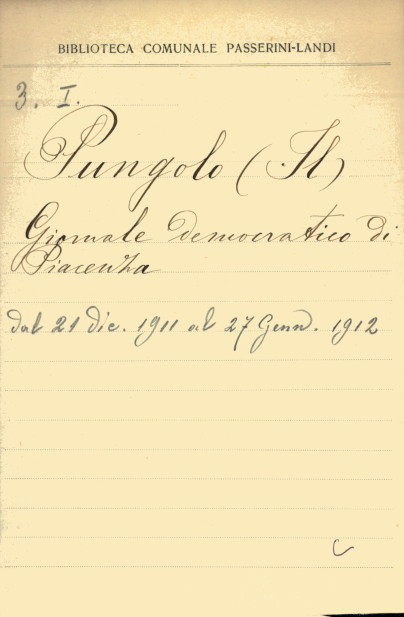 BIBLIOTECA COMUNALE PASSERINI-LANDI
3. I.
Pungolo (Il)
Giornale democratico di
Piacenza
dal 21 dic. 1911 al 27 Genn. 1912
C